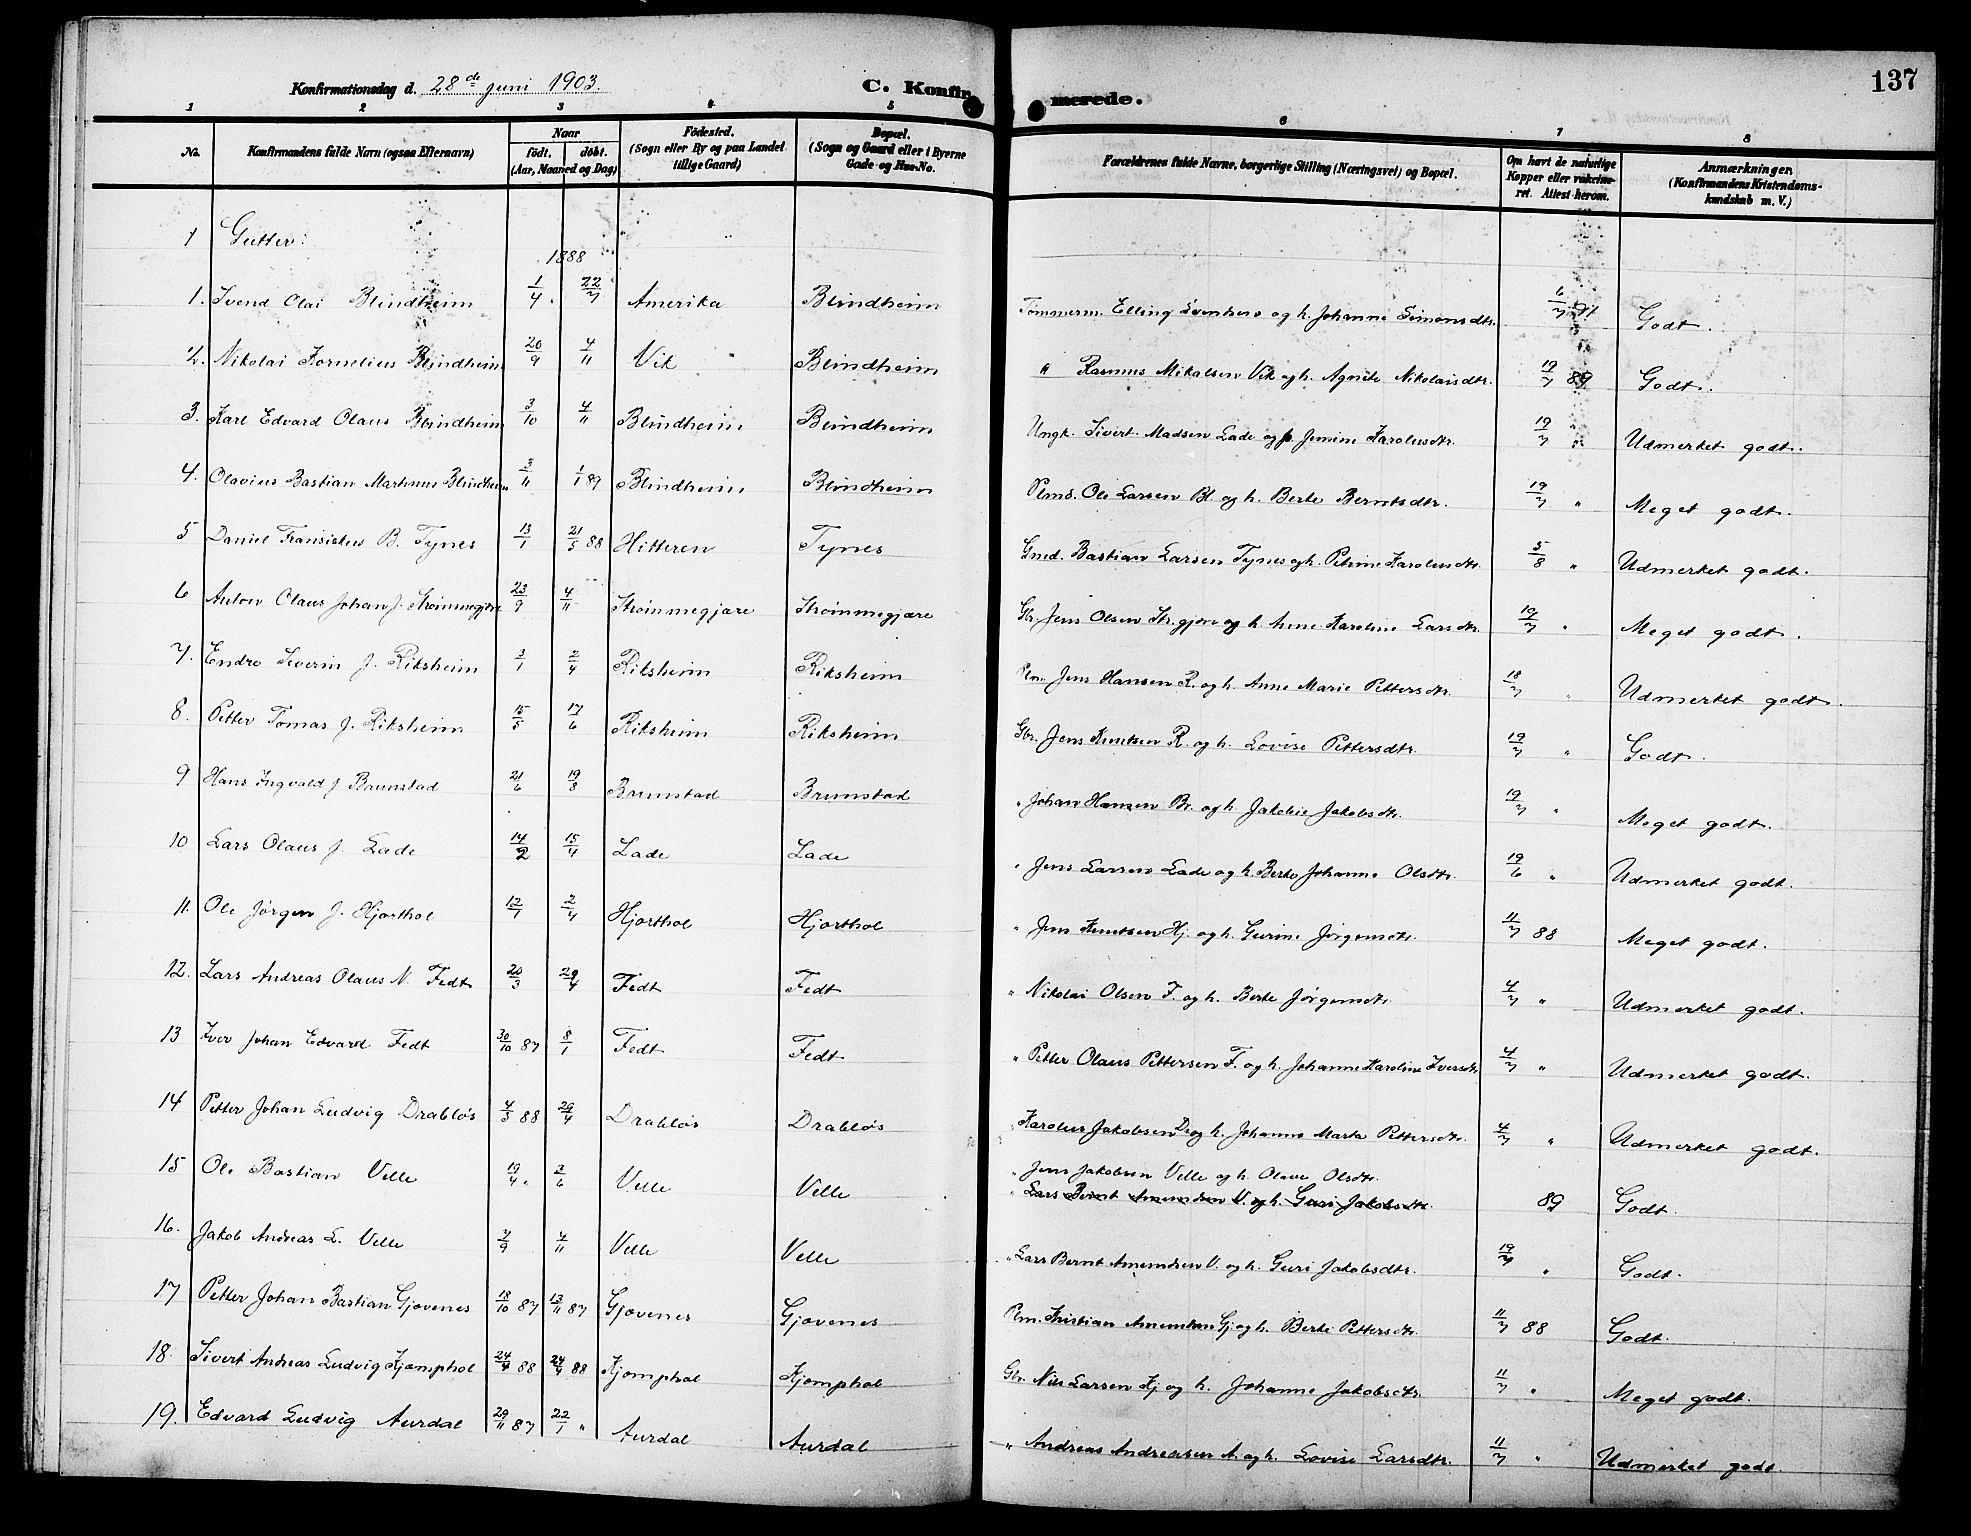 137
Konfirmationsdag d. 28de juni 1903. C. Konfirmerede.
1 2 3 4 5 6 7 8
No. Konfirmandens fulde Navn (ogsaa Efternavn) Naar født. døbt. (Aar, Maaned og Dag) Fødested. (Sogn eller By og paa Landet tillige Gaard) Bopæl. (Sogn og Gaard eller i Byerne Gade og Hus-No. Forældrenes fulde Navne, borgerlige Stilling (Næringsvei) og Bopæl. Om havt de naturlige Kopper eller vakcineret. Attest herom. Anmærkninger. (Konfirmandens Kristendomskundskab m. V.)
1 Gutter:
1888
1. Ivend Olai Blindheim 1/4 22/7 Amerika Blindheim Tømmerm. Elling og h. Johanne Simonsdtr. 6/7 91 Godt.
2. Nikolai Kornelius Blindheim 20/9 4/11 Vik Blindheim " Rasmus Mikalsen Vik og h. Agnete Nikolaisdtr. 19/7 89 Godt.
3. Karl Edvard Olaus Blindheim 3/10 4/11 Blindheim Blindheim Ungk. Sivert Madsen Lade og p. Jemine Karolusdtr. 19/7 " Udmerket godt.
4. Olavius Bastian Martinus Blindheim 3/11 1/1 89 Blindheim Blindheim Plms. Ole Larsen Bl. og h. Berte Berntsdtr. 19/7 " Meget godt.
5 Daniel Fransiskus B. Tynes 13/1 21/5 88 Hitteren Tynes Gmd. Bastian Larsen Tynes og h. Petrine Karolusdtr. 5/8 " Udmerket godt.
6 Anton Olaus Johan J. Strømmegjære 23/9 4/11 Strømmegjære Strømmegjære Gbr. Jens Olsen Str.gjære og h. Anne Karoline Larsdtr. 19/7 " Meget godt.
7. Endre Severin J. Riksheim 3/1 2/4 Riksheim Riksheim Plm. Jens Hansen R. og h. Anne Marie Pettersdtr. 18/7 " Udmerket godt.
8. Petter Tomas J. Riksheim 15/5 17/6 Riksheim Riksheim Gbr. Jens Knutsen R. og h. Lovise Pettersdtr. 19/7 " Godt.
9 Hans Ingvald J. Brunstad 21/6 19/8 Brunstad Brunstad " Johan Hansen Br. og h. Jakobie Jakobsdtr. 19/7 " Meget godt.
10 Lars Olaus J. Lade 14/2 15/4 Lade Lade " Jens Larsen Lade og h. Berte Johanne Olsdtr. 19/6 " Udmerket godt.
11. Ole Jørgen J. Hjorthol 12/1 2/4 Hjorthol Hjorthol " Jens Knutsen Hj. og h. Gurine Jørgensdtr. 11/7 88 Meget godt.
12. Lars Andreas Olaus N. Fedt 20/3 29/4 Fedt Fedt " Nikolai Olsen F. og h. Berte Jørgensdtr. 4/7 " Udmerket godt.
13 Iver Johan Edvard Fedt 30/10 87 8/1 Fedt Fedt " Petter Olaus Pettersen F. og h. Johanne Karoline Iversdtr. 4/7 " Udmerket godt.
14 Petter Johan Ludvig Drabløs 4/3 88 29/4 Drabløs Drabløs " Karolus Jakobsen D. og h. Johanne Marta Pettersdtr. 4/7 " Udmerket godt.
15 Ole Bastian Velle 19/4 " 3/6 Velle Velle " Jens Jakobsen Velle og h. Olave Olsdtr.
" Lars Bernt Amundsen V. og h. Guri Jakobsdtr. 89 Godt.
16. Jakob Andreas L. Velle 7/9 4/11 Velle Velle " Lars Bernt Amundsen V. og h. Guri Jakobsdtr. 19/7 " Godt.
17 Petter Johan Bastian Gjøvenes 18/10 87 13/11 87 Gjøvenes Gjøvenes Plm. Kristian Amundsen Gj. og h. Berte Pettersdtr. 11/7 88 Godt.
18. Sivert Andreas Ludvig Kjømphol 24/4 88 24/4 88 Kjømphol Kjømphol Gbr. Nils Larsen Kj. og h. Johanne Jakobsdtr. 11/7 " Meget godt.
19. Edvard Ludvig Aurdal 29/11 87 22/1 " Aurdal Aurdal " Andreas Andreassen A. og h. Lovise Larsdtr. 11/7 " Udmerket godt.